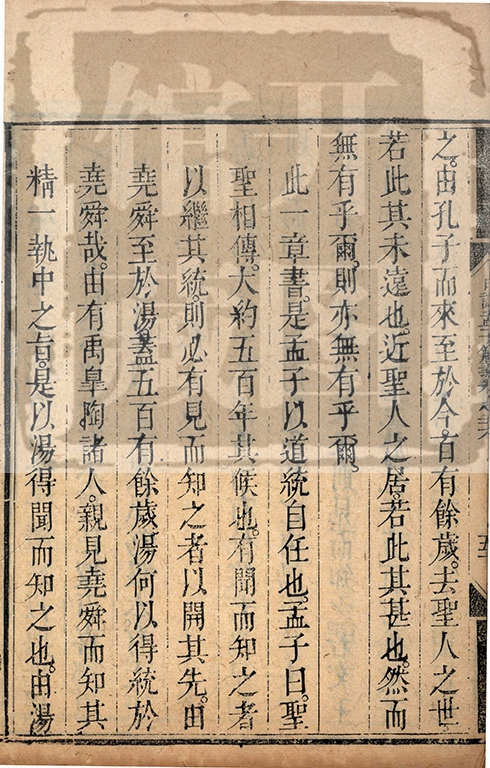 之。由孔子而來至於今。百有餘歲。去聖人之世
若此其未遠也。近聖人之居。若此其甚也。然而
無有乎爾。則亦無有乎爾。
此一章書。是孟子以道統自任也。孟子曰。聖
聖相傳。大約五百年其候也。有聞而知之者
以繼其統。則必有見而知之者以開其先。由
堯舜至於湯。蓋五百有餘歲。湯何以得統於
堯舜哉。由有禹皐陶諸人。親見堯舜而知其
精一執中之旨。是以湯得聞而知之也。由湯